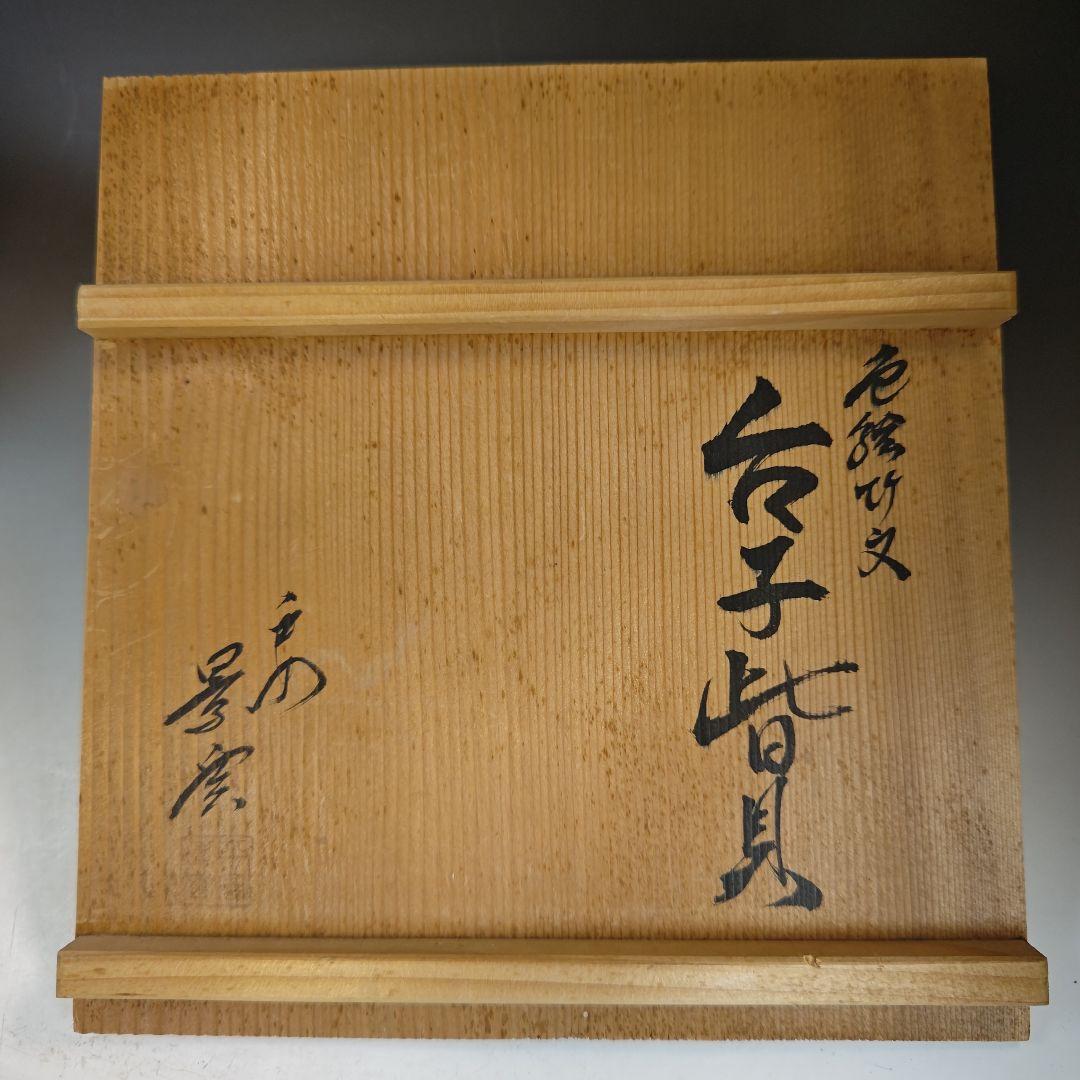 色絵竹文
台子皆具
景雲